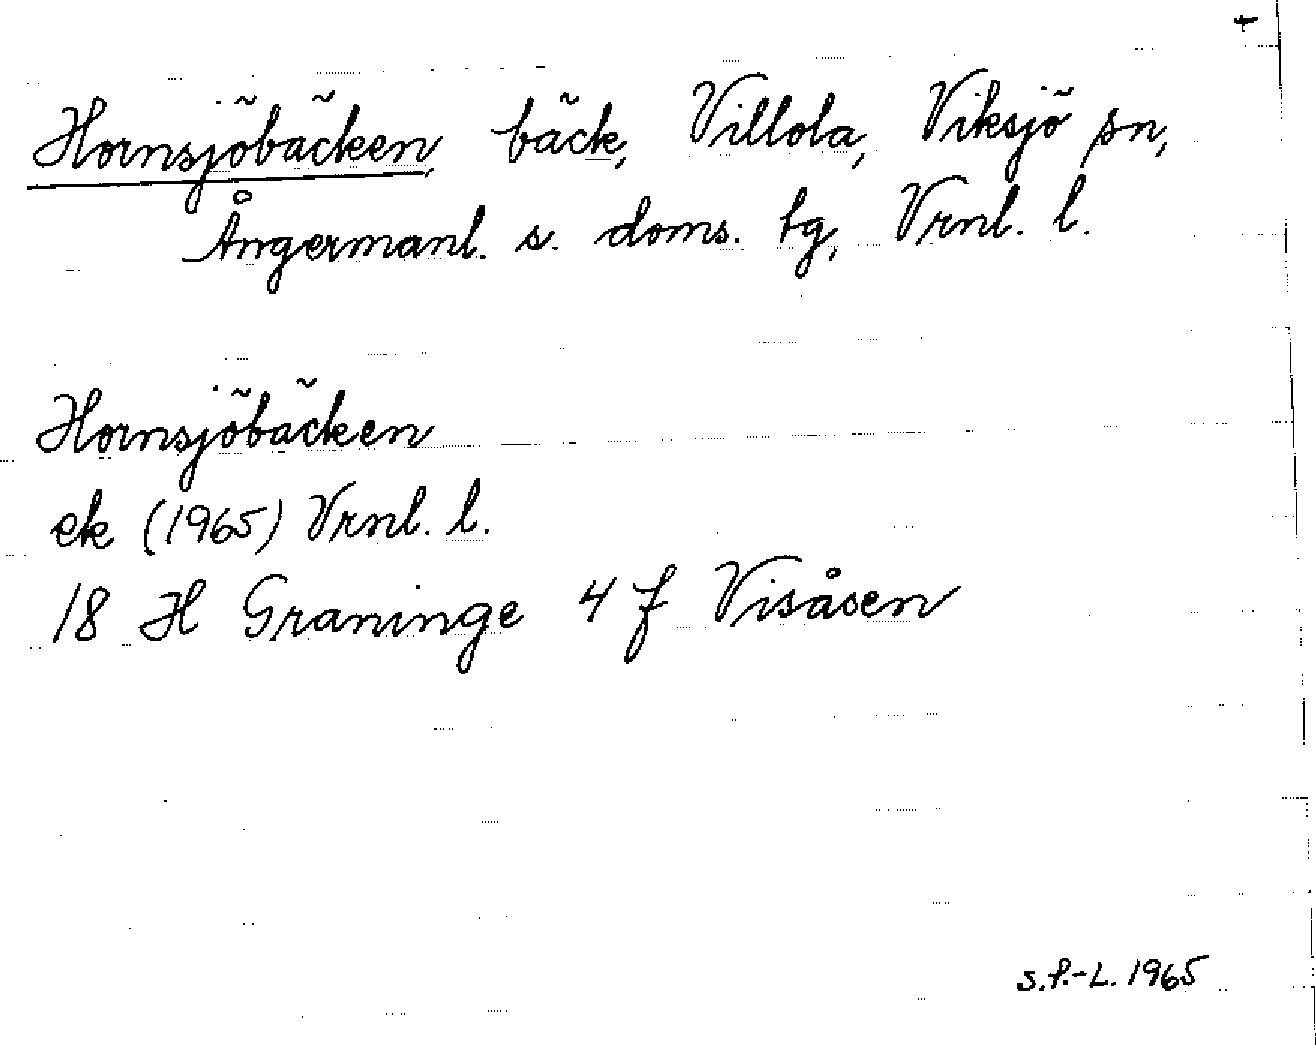 Hornsjöbäcken, bäck, Villola, Viksjö sn,
Ångermanl. s. doms. tg, Vrnl. l.
Hornsjöbäcken
ek (1965) Vrnl. l.
18 H Graninge 4 f Visåsen
S.F.-L. 1965